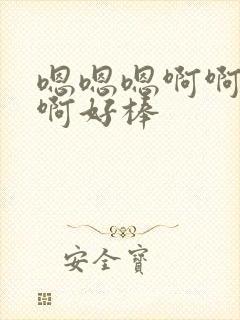 嗯嗯嗯啊啊
啊好棒
安全寶